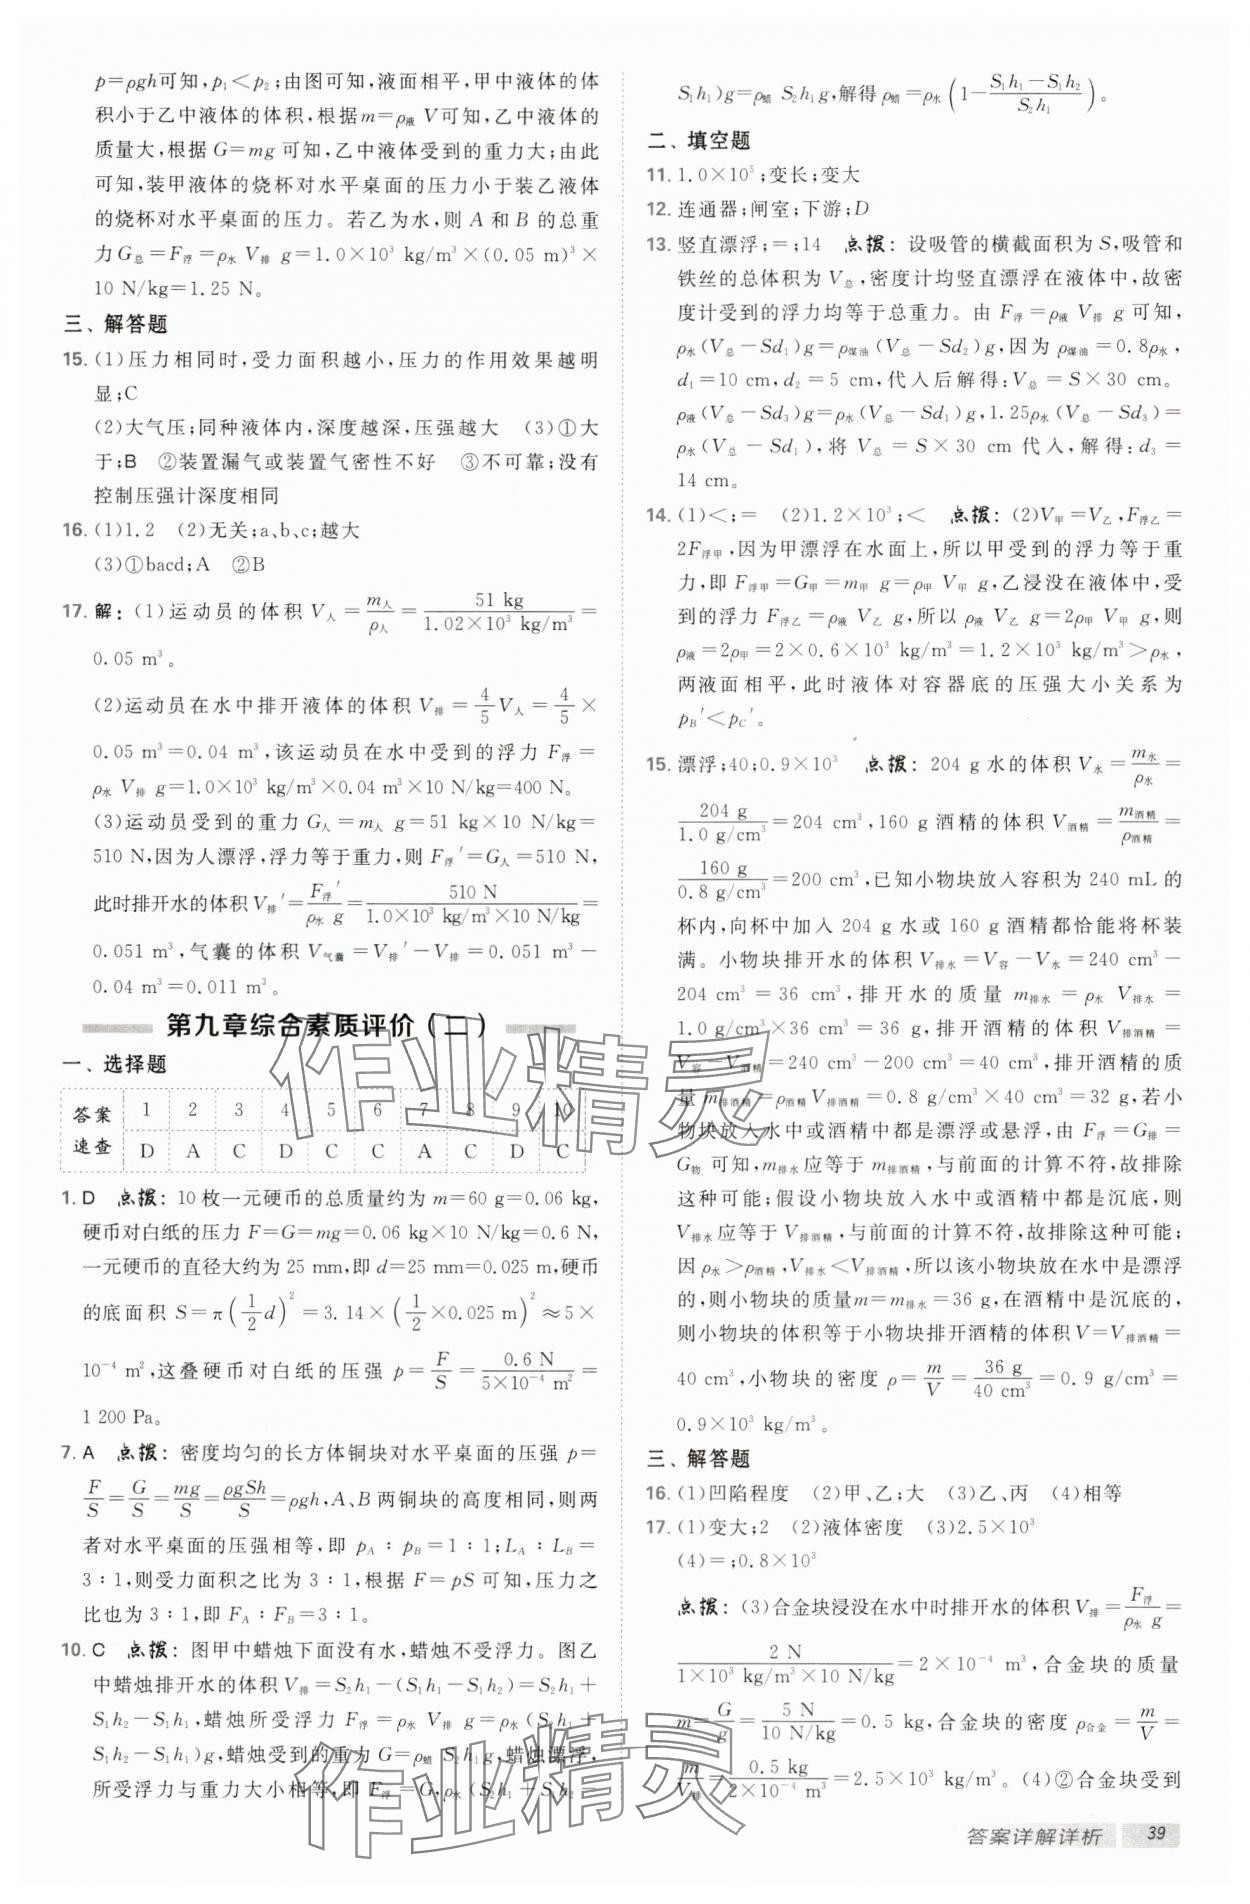 p=ρgh可知，p₁＜p₂；由图可知，液面相平，甲中液体的体
积小于乙中液体的体积，根据m=ρ液 V可知，乙中液体的
质量大，根据 G=mg 可知，乙中液体受到的重力大；由此
可知，装甲液体的烧杯对水平桌面的压力小于装乙液体
的烧杯对水平桌面的压力。若乙为水，则 A 和 B 的总重
力G总=F浮=ρ水 V排 g=1.0×10³ kg/m³×(0.05 m)³×
10 N/kg=1.25 N。
三、解答题
15. (1)压力相同时，受力面积越小，压力的作用效果越明
显；C
(2)大气压；同种液体内，深度越深，压强越大 (3)①大
于；B ②装置漏气或装置气密性不好 ③不可靠；没有
控制压强计深度相同
16. (1)1.2 (2)无关；a、b、c；越大
(3)①bacd；A ②B
17. 解：(1)运动员的体积 V人=m人/ρ人=51 kg/(1.02×10³ kg/m³)=
0.05 m³。
(2)运动员在水中排开液体的体积 V排=4/5V人=4/5×
0.05 m³=0.04 m³，该运动员在水中受到的浮力 F浮=
ρ水 V排 g=1.0×10³ kg/m³×0.04 m³×10 N/kg=400 N。
(3)运动员受到的重力 G人=m人 g=51 kg×10 N/kg=
510 N，因为人漂浮，浮力等于重力，则 F浮′=G人=510 N，
此时排开水的体积V排′=F浮′/(ρ水 g)=510 N/(1.0×10³ kg/m³×10 N/kg)=
0.051 m³，气囊的体积 V气囊=V排′−V排=0.051 m³−
0.04 m³=0.011 m³。
第九章综合素质评价(二)
一、选择题
答案速查 1 2 3 4 5 6 7 8 9 10
D A C D C C A C D C
1. D 点拨：10 枚一元硬币的总质量约为 m=60 g=0.06 kg，
硬币对白纸的压力 F=G=mg=0.06 kg×10 N/kg=0.6 N，
一元硬币的直径大约为 25 mm，即 d=25 mm=0.025 m，硬币
的底面积 S=π(1/2 d)²=3.14×(1/2×0.025 m)²≈5×
10⁻⁴ m²，这叠硬币对白纸的压强 p=F/S=0.6 N/(5×10⁻⁴ m²)=
1 200 Pa。
7. A 点拨：密度均匀的长方体铜块对水平桌面的压强 p=
F/S=G/S=mg/S=ρgSh/S=ρgh，A、B 两铜块的高度相同，则两
者对水平桌面的压强相等，即 pA：pB=1：1；LA：LB=
3：1，则受力面积之比为 3：1，根据 F=pS 可知，压力之
比也为 3：1，即 FA：FB=3：1。
10. C 点拨：图甲中蜡烛下面没有水，蜡烛不受浮力。图乙
中蜡烛排开水的体积 V排=S₂h₁−(S₁h₁−S₁h₂)=S₂h₁+
S₁h₂−S₁h₁，蜡烛所受浮力 F浮=ρ水 V排 g=ρ水(S₂h₁+
S₁h₂−S₁h₁)g，蜡烛受到的重力 G=ρ蜡 S₂h₁g，蜡烛漂浮，
所受浮力与重力大小相等，即 F浮=G，ρ水(S₂h₁+S₁h₂−
S₁h₁)g=ρ蜡 S₂h₁g，解得 ρ蜡=ρ水(1−(S₁h₁−S₁h₂)/(S₂h₁))。
二、填空题
11. 1.0×10⁵；变长；变大
12. 连通器；闸室；下游；D
13. 竖直漂浮；=；14 点拨：设吸管的横截面积为 S，吸管和
铁丝的总体积为 V总，密度计均竖直漂浮在液体中，故密
度计受到的浮力均等于总重力。由 F浮=ρ液 V排 g 可知，
ρ水(V总−Sd₁)g=ρ煤油(V总−Sd₂)g，因为 ρ煤油=0.8ρ水，
d₁=10 cm，d₂=5 cm，代入后解得：V总=S×30 cm。
ρ液(V总−Sd₃)g=ρ水(V总−Sd₁)g，1.25ρ水(V总−Sd₃)=
ρ水(V总−Sd₁)，将 V总=S×30 cm 代入，解得：d₃=
14 cm。
14. (1)＜；= (2)1.2×10³；＜ 点拨：(2)V甲=V乙，F浮乙=
2F浮甲，因为甲漂浮在水面上，所以甲受到的浮力等于重
力，即 F浮甲=G甲=m甲 g=ρ甲 V甲 g，乙浸没在液体中，受
到的浮力 F浮乙=ρ液 V乙 g，所以 ρ液 V乙 g=2ρ甲 V甲 g，则
ρ液=2ρ甲=2×0.6×10³ kg/m³=1.2×10³ kg/m³＞ρ水，
两液面相平，此时液体对容器底的压强大小关系为
pB′＜pC′。
15. 漂浮；40；0.9×10³ 点拨：204 g水的体积 V水=m水/ρ水=
204 g/(1.0 g/cm³)=204 cm³，160 g酒精的体积 V酒精=m酒精/ρ酒精=
160 g/(0.8 g/cm³)=200 cm³，已知小物块放入容积为 240 mL的
杯内，向杯中加入 204 g 水或 160 g 酒精都恰能将杯装
满。小物块排开水的体积 V排水=V容−V水=240 cm³−
204 cm³=36 cm³，排开水的质量 m排水=ρ水 V排水=
1.0 g/cm³×36 cm³=36 g，排开酒精的体积 V排酒精=
V容−V酒精=240 cm³−200 cm³=40 cm³，排开酒精的质
量 m排酒精=ρ酒精 V排酒精=0.8 g/cm³×40 cm³=32 g，若小
物块放入水中或酒精中都是漂浮或悬浮，由 F浮=G排=
G物 可知，m排水应等于 m排酒精，与前面的计算不符，故排除
这种可能；假设小物块放入水中或酒精中都是沉底，则
V排水应等于 V排酒精，与前面的计算不符，故排除这种可能；
因 ρ水＞ρ酒精，V排水＜V排酒精，所以该小物块放在水中是漂浮
的，则小物块的质量m=m排水=36 g，在酒精中是沉底的，
则小物块的体积等于小物块排开酒精的体积 V=V排酒精=
40 cm³，小物块的密度 ρ=m/V=36 g/(40 cm³)=0.9 g/cm³=
0.9×10³ kg/m³。
三、解答题
16. (1)凹陷程度 (2)甲、乙；大 (3)乙、丙 (4)相等
17. (1)变大；2 (2)液体密度 (3)2.5×10³
(4)=；0.8×10³
点拨：(3)合金块浸没在水中时排开水的体积 V排=F浮/(ρ水 g)=
2 N/(1×10³ kg/m³×10 N/kg)=2×10⁻⁴ m³，合金块的质量
m=G/g=5 N/(10 N/kg)=0.5 kg，合金块的密度 ρ合金=m/V=
m/V排=0.5 kg/(2×10⁻⁴ m³)=2.5×10³ kg/m³。(4)②合金块受到
答案详解详析 39
作业精灵
作业精灵